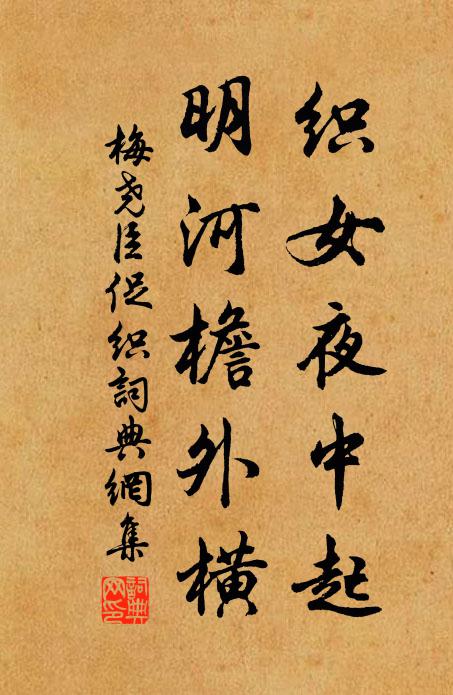 织女夜中起
明河檐外横
梅尧臣促织詞典網集
詞典网印